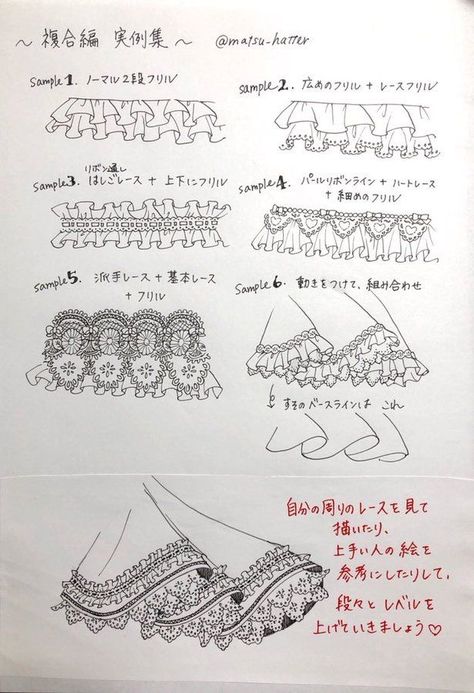 〜 複合編 実例集 〜 @matsu_hatter
sample1. ノーマル2段フリル
sample2. 広めのフリル + レースフリル
リボン通し
sample3. はしごレース + 上下にフリル
sample4. パールリボンライン + ハートレース
+ 細めのフリル
sample5. 派手レース + 基本レース
+ フリル
sample6. 動きをつけて、組み合わせ
すそのベースラインは これ
自分の周りのレースを見て
描いたり、
上手い人の絵を
参考にしたりして、
段々とレベルを
上げていきましょう♡